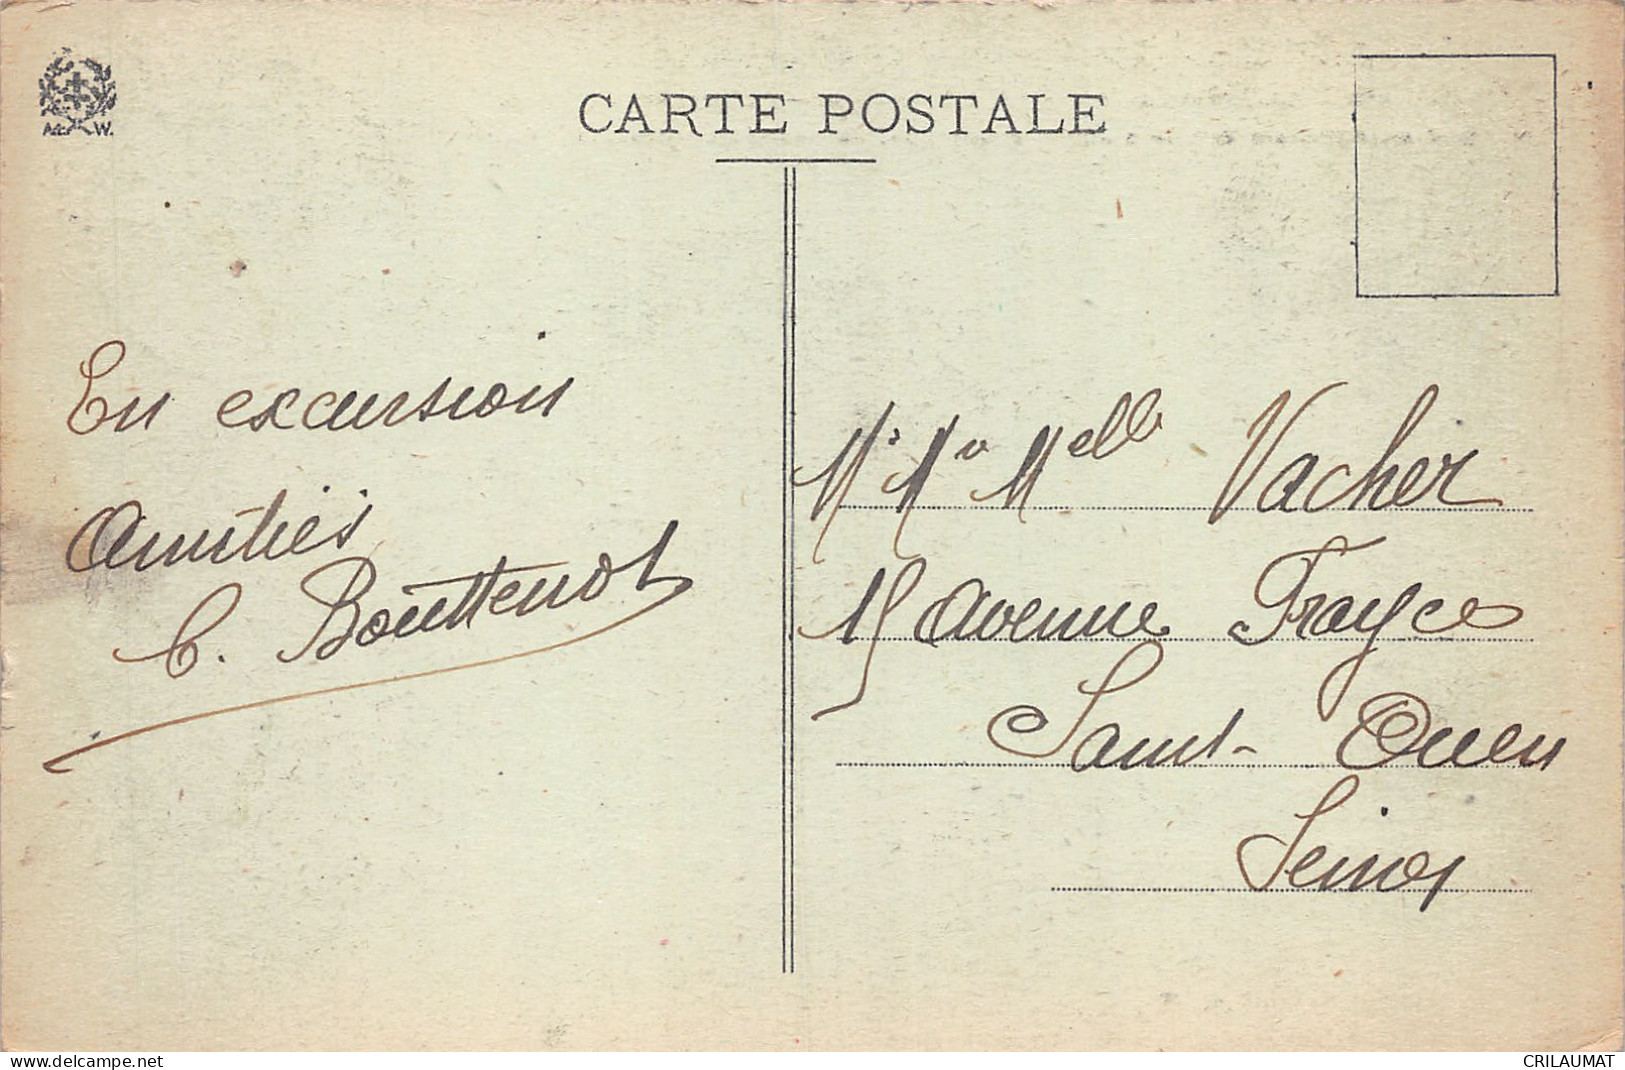 CARTE POSTALE
En excursion
Amitiés
C. Bouttenot
Mr Me Melle Vacher
15 Avenue Frayce
Saint-Ouen
Seine
www.delcampe.net
CRILAUMAT